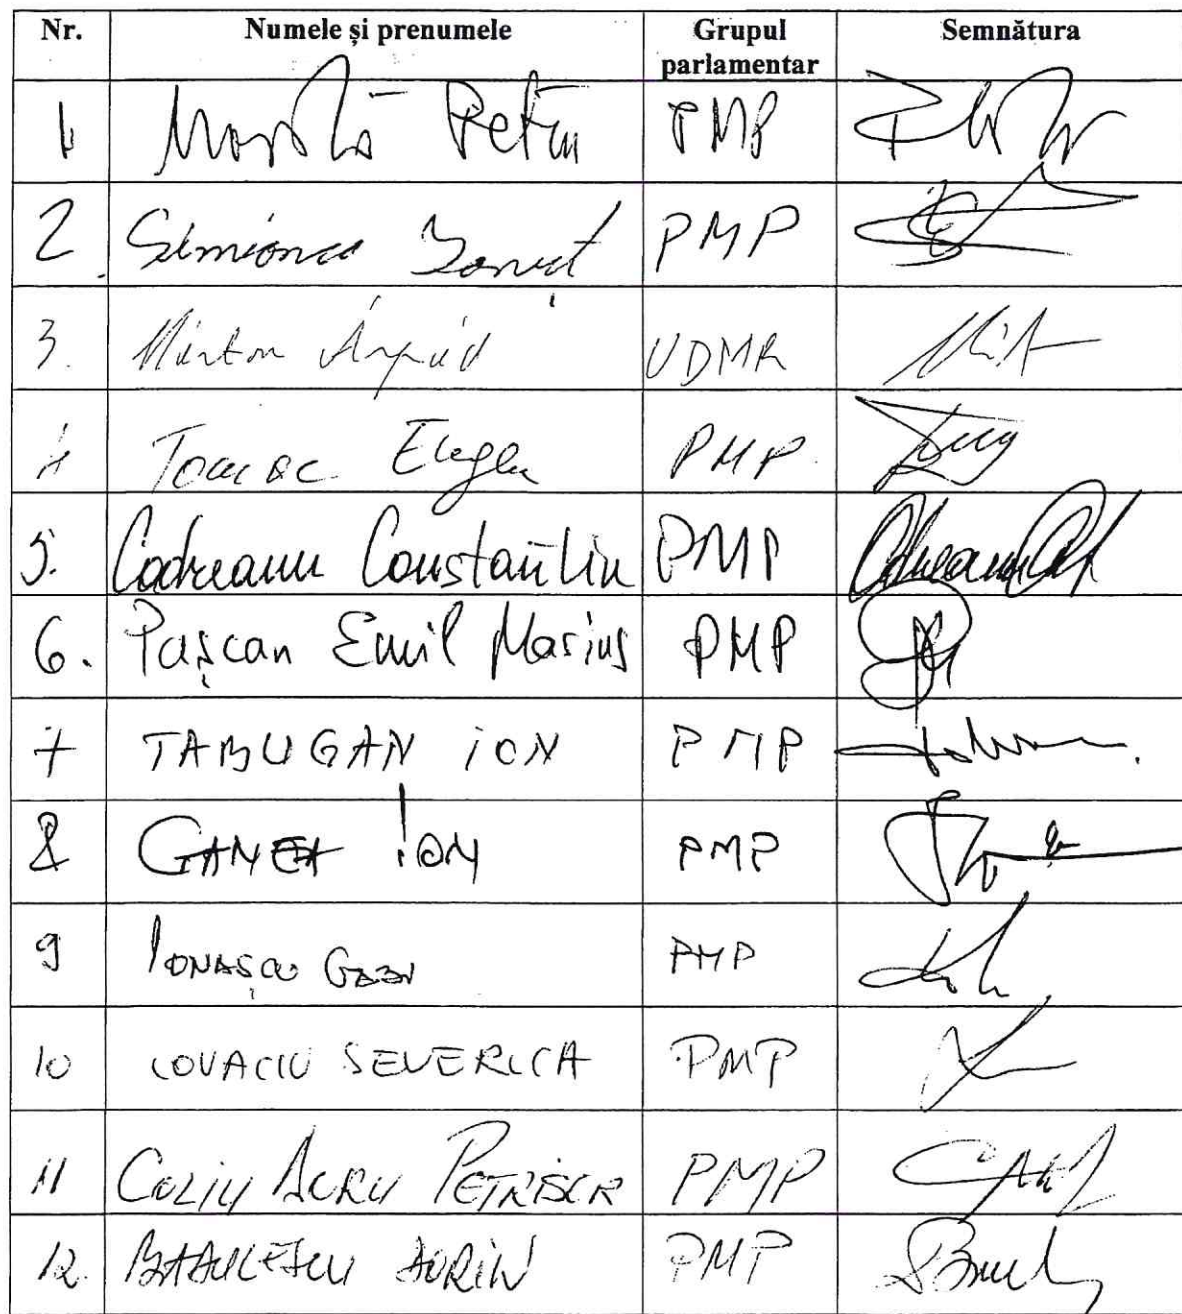 Nr. Numele și prenumele Grupul parlamentar Semnătura
1. Movilă Petru PMP
2. Simionca Ionuț PMP
3. Márton Árpád UDMR
4 Tomac Eugen PMP
5. Codreanu Constantin PMP Codreanu
6. Pașcan Emil Marius PMP
7 TABUGAN ION PMP
8 GANEA ION PMP
9 IONAȘCU GABI PMP
10 COVACIU SEVERICA PMP
11 COLIU DORU PETRIȘOR PMP
12. PMP